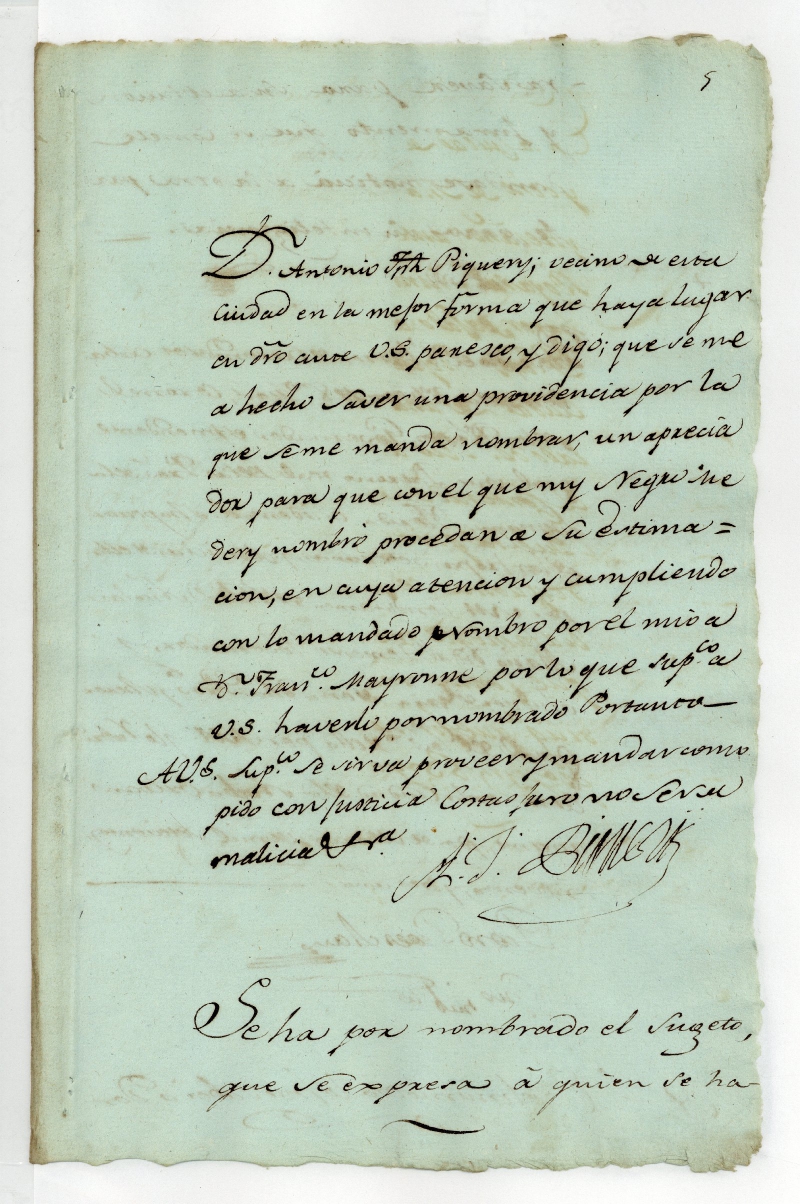 5
D.n Antonio Jph Piquery; vecino de esta
Ciudad en la mejor forma que haya lugar
en dro ante V.S. paresco, y digo; que se me
a hecho saver una providencia por la
que se me manda nombrar, un aprecia
dor para que con el que my Negro
nombró procedan a su estima=
cion, en cuya atencion y cumpliendo
con lo mandado nombro por el mio a
D.n Fran.co Mayronne por lo que sup.co a
V.S. haverlo por nombrado Portanto
A V.S. sup.co se sirva proveer y mandar como
pido con Justicia Costas juro no ser de
malicia &ra
A. J. Piquery
Se ha por nombrado el sugeto,
que se expresa â quien se ha-